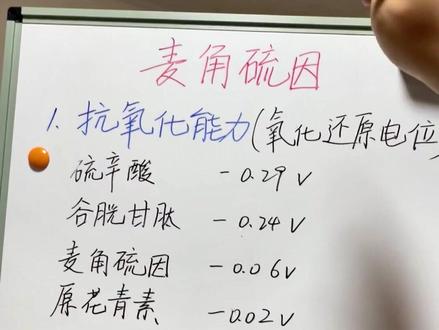 麦角硫因
1. 抗氧化能力(氧化还原电位)
硫辛酸 -0.29V
谷胱甘肽 -0.24V
麦角硫因 -0.06V
原花青素 -0.02V